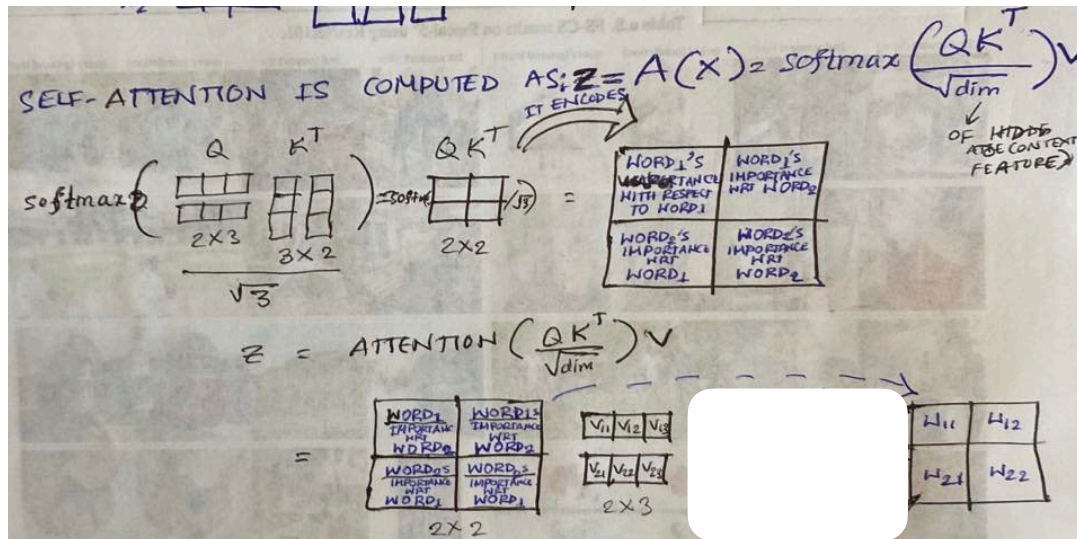 SELF-ATTENTION IS COMPUTED AS: Z = A(X) = softmax (QK^T / √dim) V
IT ENCODES
OF
CONTEXT
FEATURE)
Q K^T QK^T
softmax
2×3 3×2
√3
= softm /√3) =
2×2
WORD1'S
IMPORTANCE
WITH RESPECT
TO WORD1
WORD1'S
IMPORTANCE
WRT WORD2
WORD2'S
IMPORTANCE
WRT
WORD1
WORD2'S
IMPORTANCE
WRT
WORD2
Z = ATTENTION (QK^T / √dim) V
=
WORD1
IMPORTANC
WRT
WORD2
WORD1S
IMPORTANCE
WRT
WORD2
WORD2S
IMPORTANCE
WRT
WORD1
WORD2S
IMPORTANCE
WRT
WORD1
2×2
V11 V12 V13
V21 V22 V23
2×3
W11 W12
W21 W22